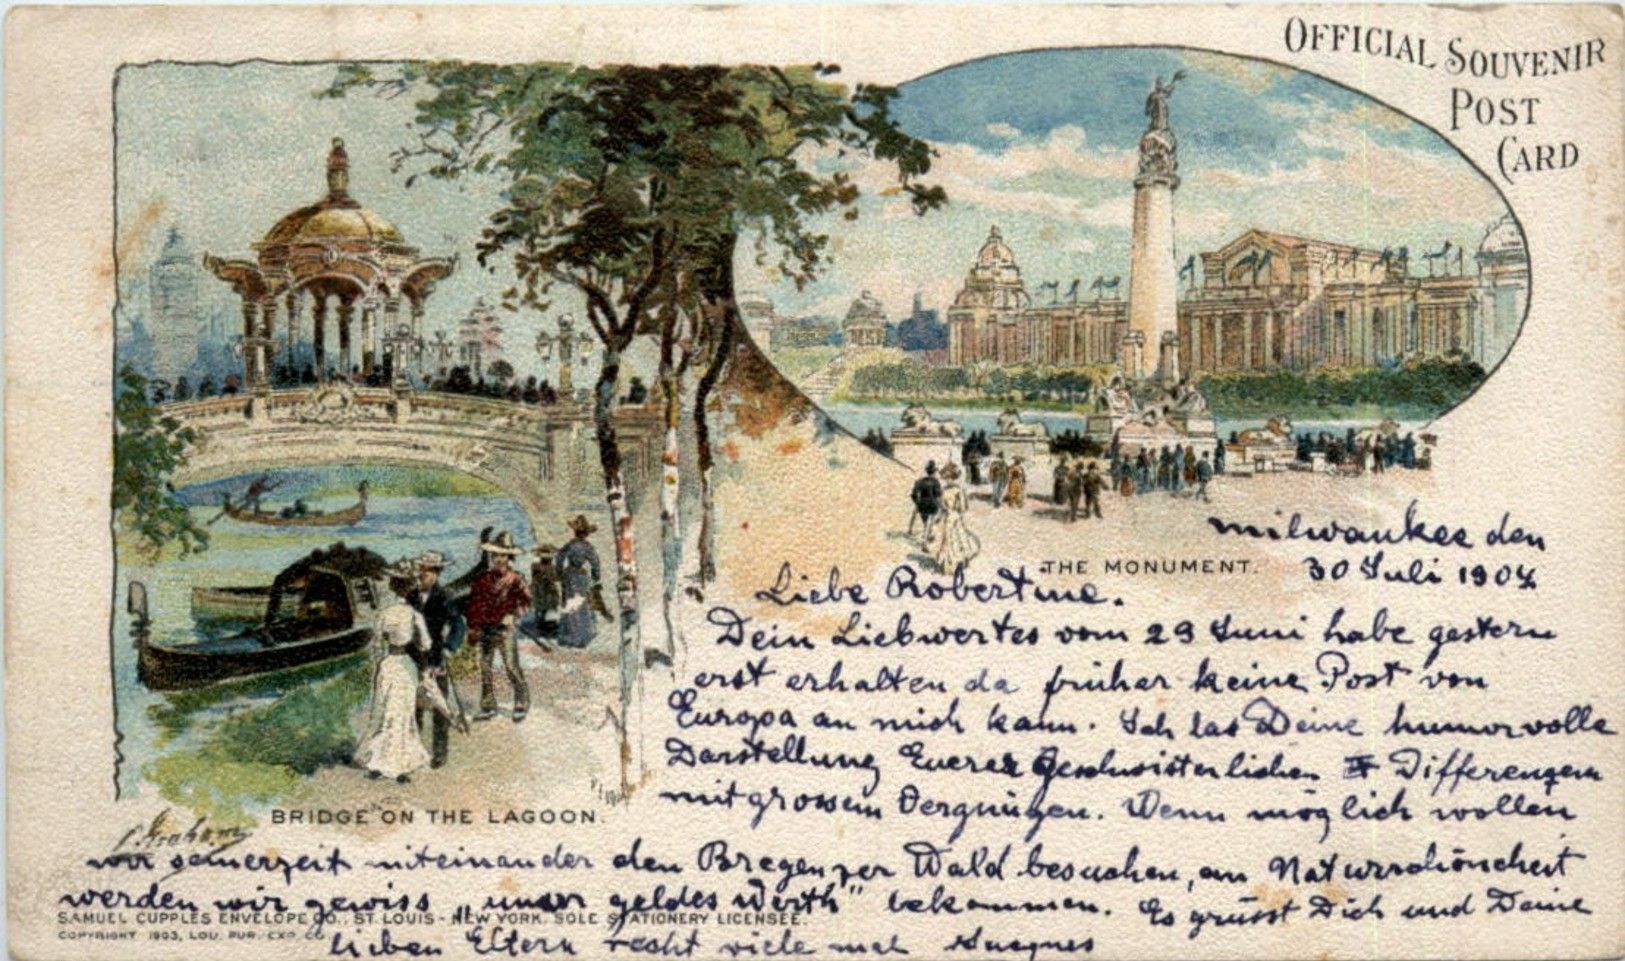 OFFICIAL SOUVENIR
POST
CARD
THE MONUMENT.
BRIDGE ON THE LAGOON.
Milwaukee den
30 Juli 1904
Liebe Robertine.
Dein Liebwertes vom 29 Juni habe gestern
erst erhalten da früher keine Post von
Europa an mich kam. Ich las Deine humorvolle
Darstellung Eurer Geschwisterlichen Differenzen
mit grossem Vergnügen. Wenn möglich wollen
wir seinerzeit miteinander den Bregenzer Wald besuchen, an Naturschönheit
werden wir gewiss „unser geldes Werth" bekommen. Es grüsst Dich und Deine
lieben Eltern recht viele mal
SAMUEL CUPPLES ENVELOPE CO., ST. LOUIS - NEW YORK. SOLE STATIONERY LICENSEE.
COPYRIGHT 1903, LOU. PUR. EXP. CO